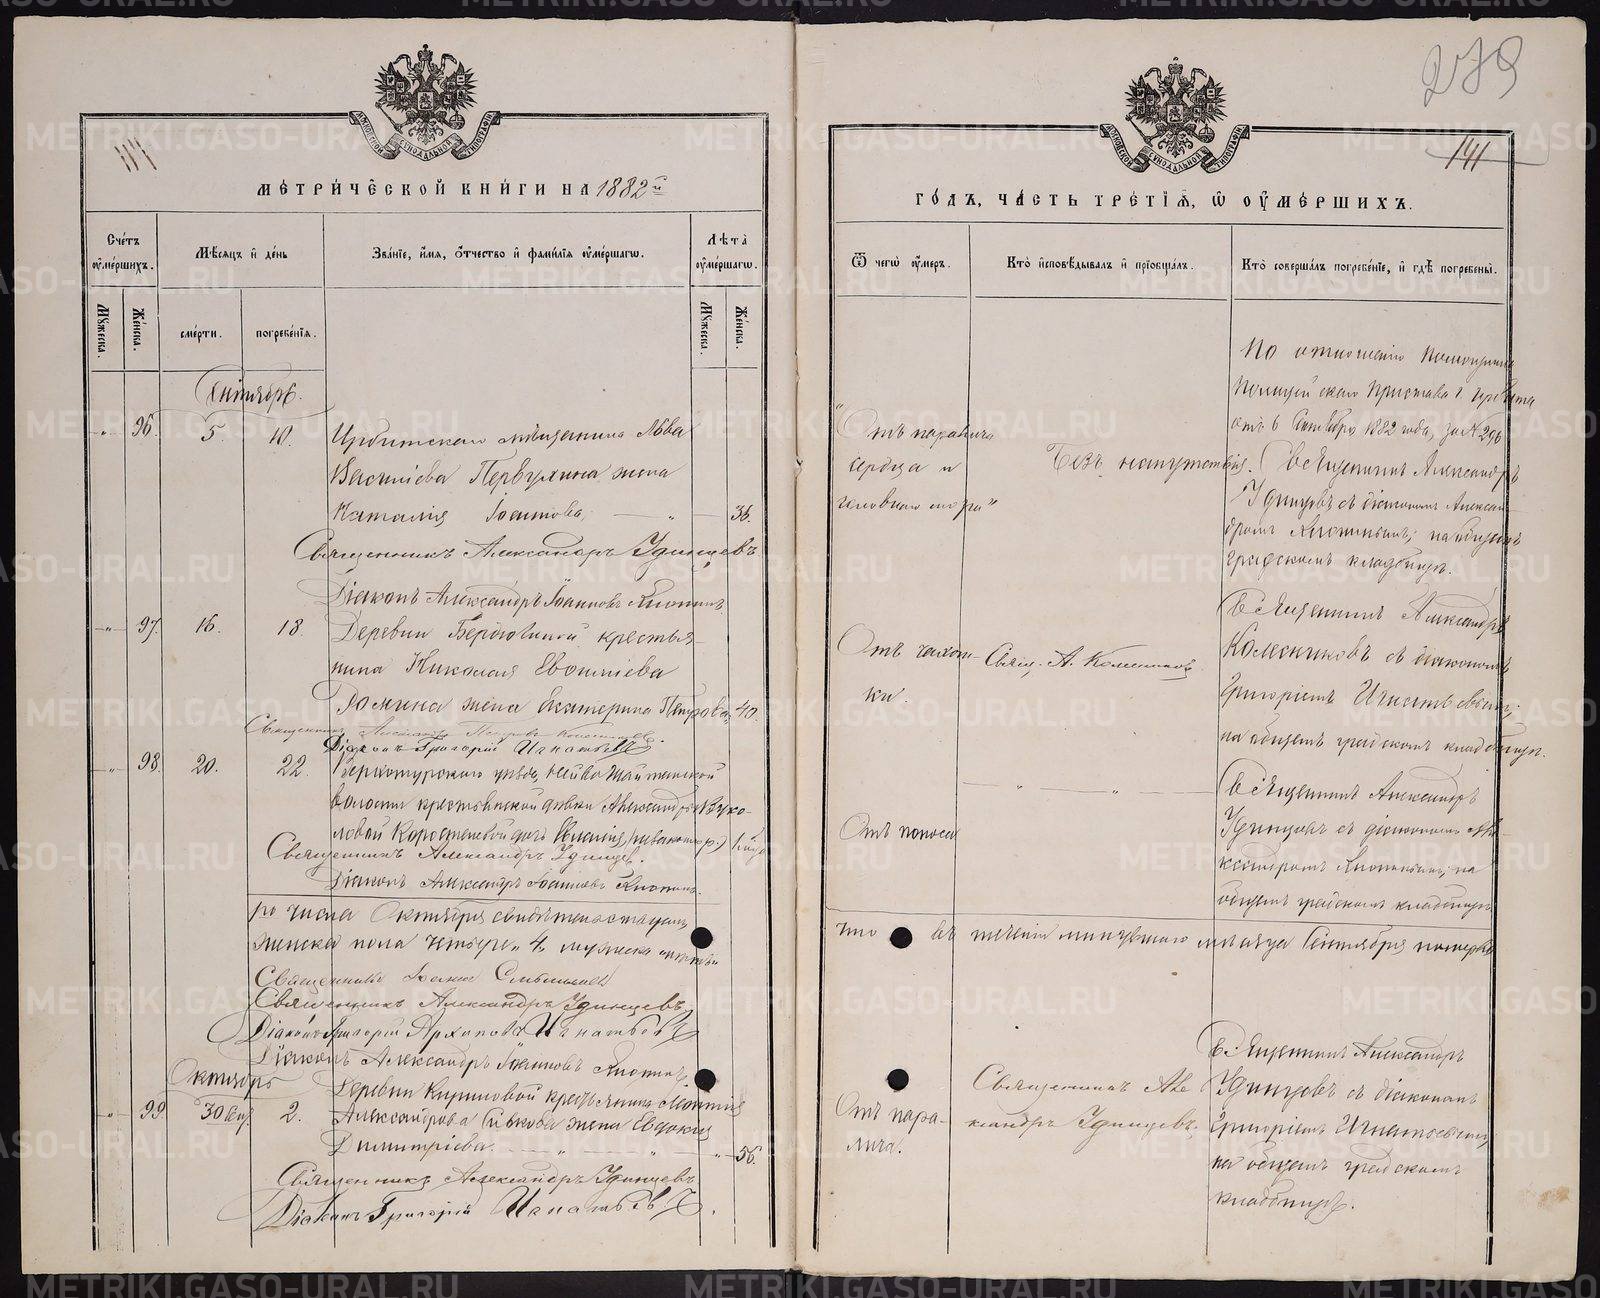 279
141
МОСКОВСКОЙ СѴНОДАЛЬНОЙ ТИПОГРАФІИ
МЕТРИЧЕСКОЙ КНИГИ НА 1882й
Счетъ умершихъ.
Мѣсяцъ и день
Званіе, имя, отчество и фамилія умершаго.
Лѣта умершаго.
Мужеска.
Женска.
смерти.
погребенія.
Мужеска.
Женска.
Сентябрь.
96. 5 10. Ирбитскаго мѣщанина Льва
Васильева Первухина жена
Наталія Іоаннова, 36.
Священникъ Александръ Удинцевъ
Діаконъ Александръ Іоанновъ
97. 16. 18. Деревни Бердюгиной крестья-
нина Николая
жена Екатерина Петрова, 40.
Священникъ
Діаконъ Григорій Игнатьевъ
98. 20. 22. Верхотурскаго уѣзда,
волости крестьянской дѣвки Александры
дочь
Священникъ Александръ Удинцев.
Діаконъ Александръ Іоанновъ
числа Октября свидѣтельствуемъ,
женска пола четыре 4, мужеска
Священникъ Іоаннъ
Священникъ Александръ Удинцевъ,
Діаконъ Григорій Архиповъ Игнатьевъ
Діаконъ Александръ Іоанновъ
Октябрь
99. 30 2. Деревни Кириловой
Александрова жена Евдокія
Димитріева. 56.
Священникъ Александръ Удинцевъ
Діаконъ Григорій Игнатьевъ.
МОСКОВСКОЙ СѴНОДАЛЬНОЙ ТИПОГРАФІИ
ГОДЪ, ЧАСТЬ ТРЕТІЯ, Ѿ УМЕРШИХЪ.
Ѿ чего умеръ.
Кто исповѣдывалъ и пріобщалъ.
Кто совершалъ погребеніе, и гдѣ погребены.
По отношенію Помощника
Полицейскаго Пристава 1
отъ 6 Сентября 1882 года, за № 296
"Отъ паралича
сердца и
головного мозга"
Безъ напутствія.
Священникъ Александръ
Удинцевъ съ діакономъ Алексан-
дромъ на общемъ
градскомъ кладбищѣ.
Отъ чахот-
ки.
Свящ. А. Колесниковъ
Священникъ Александръ
Колесниковъ съ діакономъ
Григоріемъ Игнатьевымъ;
на общемъ градскомъ кладбищѣ.
Отъ поноса
Священникъ Александръ
Удинцевъ съ діакономъ Але-
ксандромъ на
общемъ градскомъ кладбищѣ
что въ теченіи минувшаго мѣсяца Сентября
Отъ пара-
лича.
Священникъ Але
ксандръ Удинцевъ.
Священникъ Александръ
Удинцевъ съ діакономъ
Григоріемъ Игнатьевымъ,
на общемъ градскомъ
кладбищѣ.
METRIKI.GASO-URAL.RU